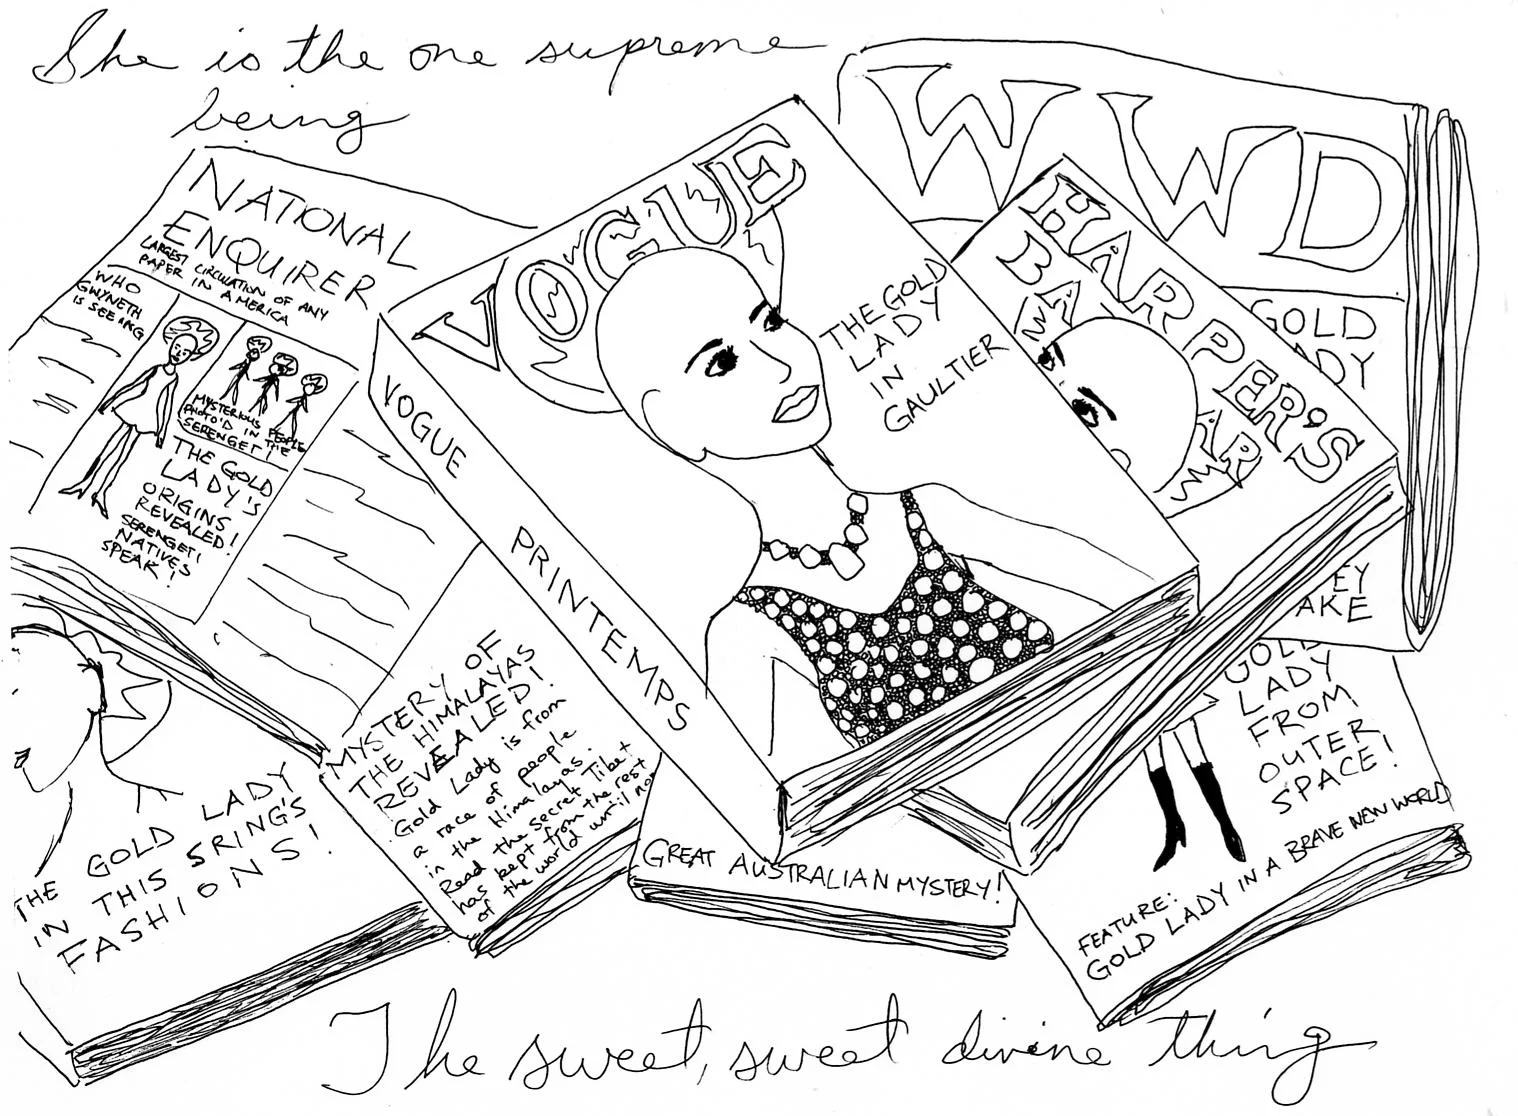 She is the one supreme
being
NATIONAL
ENQUIRER
LARGEST CIRCULATION OF ANY
PAPER IN AMERICA
WHO
GWYNETH
IS SEEING
MYSTERIOUS PEOPLE
PHOTO'D IN THE
SERENGETI
THE GOLD
LADY'S
ORIGINS
REVEALED!
SERENGETI
NATIVES
SPEAK!
VOGUE
THE GOLD
LADY
IN
GAULTIER
VOGUE PRINTEMPS
WWD
GOLD
DY
EY
AKE
HARPER'S
BA
AR
THE GOLD LADY
IN THIS SRING'S
FASHIONS!
MYSTERY OF
THE HIMALAYAS
REVEALED!
Gold Lady is from
a race of people
in the Himalayas.
Read the secret Tibet
has kept from the rest
of the world until now
GREAT AUSTRALIAN MYSTERY!
GOLD
LADY
FROM
OUTER
SPACE!
FEATURE:
GOLD LADY IN A BRAVE NEW WORLD
The sweet, sweet divine thing